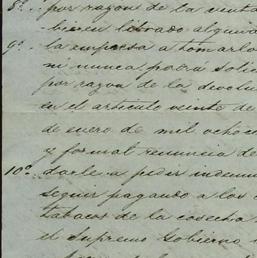 8º. por razon de la venta
bieren librado alguna
9º. la empresa a tomarlos
ni nunca podrá solic
por razon de la devolu
en el articulo veinte de
de enero de mil ochoce
y formal renuncia de
10º. darle a pedir indemn
seguir pagando a los
tabacos de la cosecha
el Supremo Gobierno